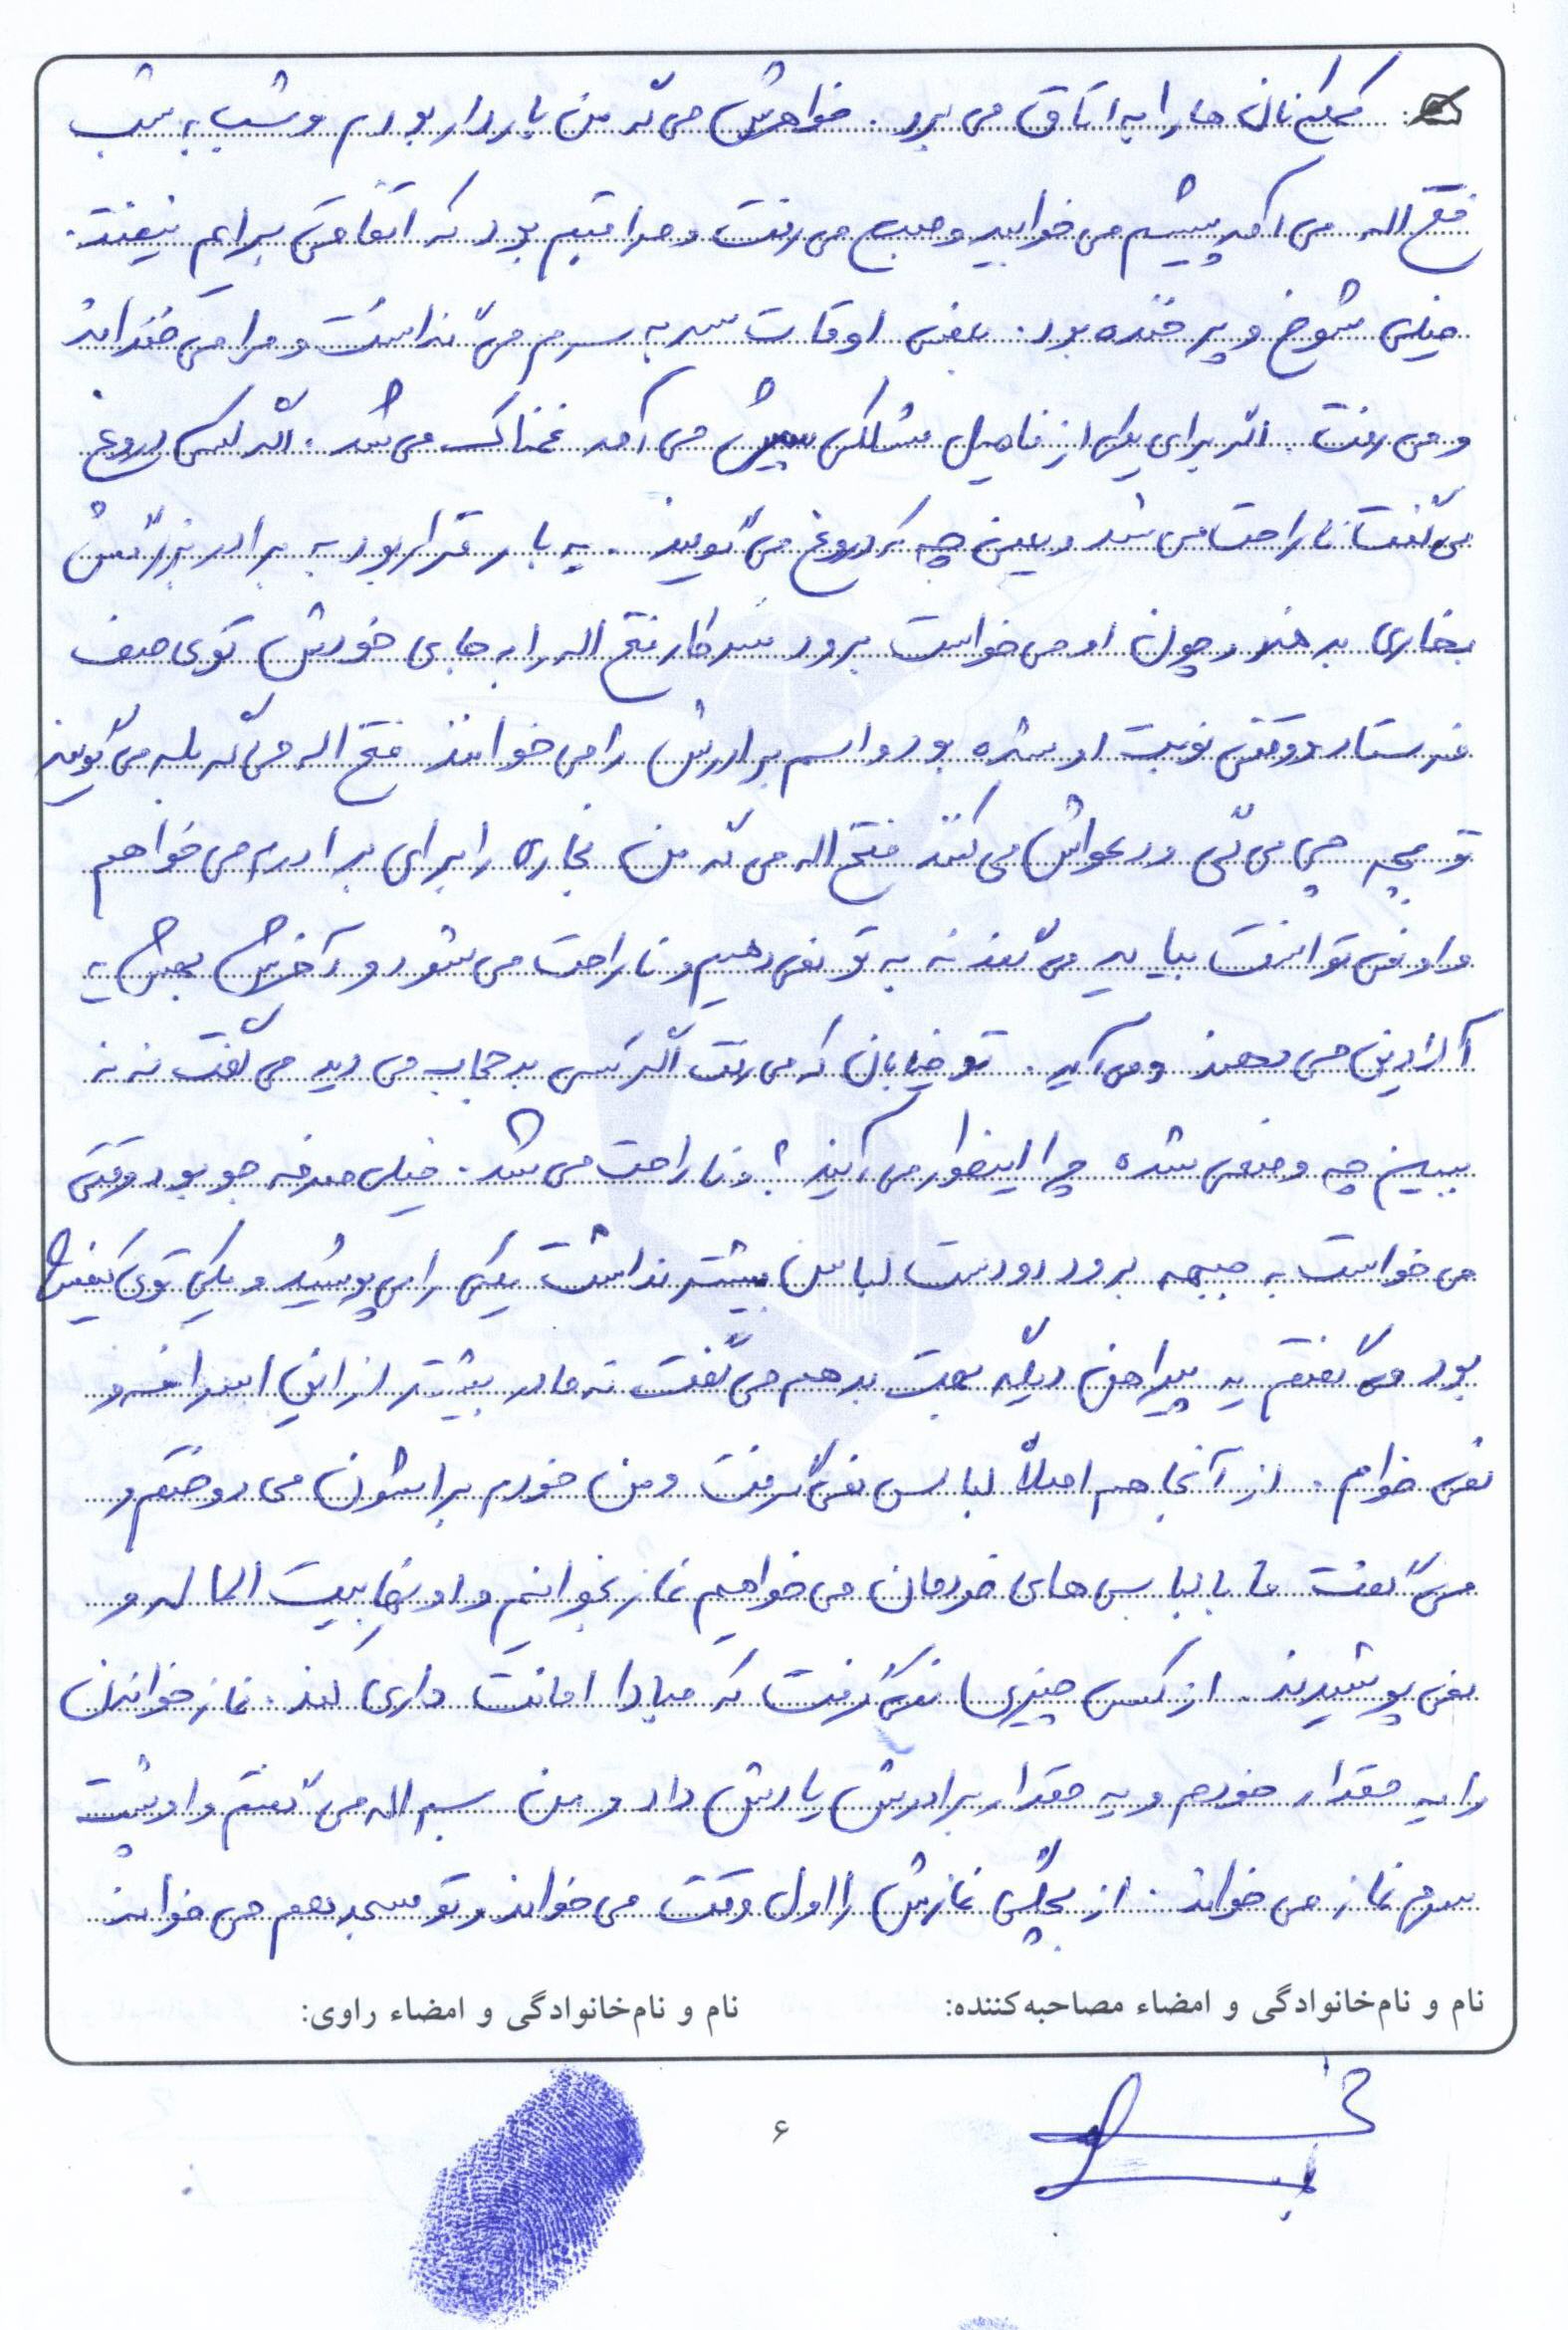 کمک نان ها را به اتاق می برد. خواهرش می گه من باردار بودم و شب به شب
فتح اله می آمد پیشم می خوابید و صبح می رفت و مراقبم بود که اتفاقی برایم نیفتد.
خیلی شوخ و پر خنده بود. بعضی اوقات سر به سرم می گذاشت و مرا می خنداند
و می رفت. اگر برای یکی از فامیل مشکلی پیش می آمد غمناک می شد. اگر کسی دروغ
می گفت ناراحت می شد و یعنی چه که دروغ می گویند. یه بار قرار بود به برادر بزرگش
بخاری بدهند و چون او می خواست برود سر کار فتح اله را به جای خودش توی صف
فرستاد و وقتی نوبت او شده بود و اسم برادرش را می خوانند فتح اله می گه بله می گویند
تو بچه چی می گی و دعواش می کنند فتح اله می گه من بخاری را برای برادرم می خواهم
و او نمی توانست بیاید می گفتند نه به تو نمی دهیم و ناراحت می شود و آخرش بهش یه
آلادین می دهند و می آید. تو خیابان که می رفت اگر کسی بد حجاب می دید می گفت نه نه
ببین چه وضعی شده چرا اینطور می آیند؟ و ناراحت می شد. خیلی صرفه جو بود وقتی
می خواست به جبهه برود دو دست لباس بیشتر نداشت یکی را می پوشید و یکی توی کیفش
بود می گفتم یه پیراهن دیگه بهت بدهم می گفت نه مادر بیشتر از این اسرافه و
نمی خوام. از آنجا هم اصلاً لباس نمی گرفت و من خودم براشون می دوختم و
می گفت ما با لباس های خودمان می خواهیم نماز بخوانیم و اونها بیت الماله و
نمی پوشیدند. از کسی چیزی نمی گرفت که مبادا امانت داری کند. نماز خواندن
را یه مقدار خودم و یه مقدار برادرش یادش داد و من بسم اله می گفتم و او پشت
سرم نماز می خواند. از بچگی نمازش را اول وقت می خواند و تو مسجد هم می خواند
نام و نام‌خانوادگی و امضاء مصاحبه‌کننده:
نام و نام‌خانوادگی و امضاء راوی:
۶